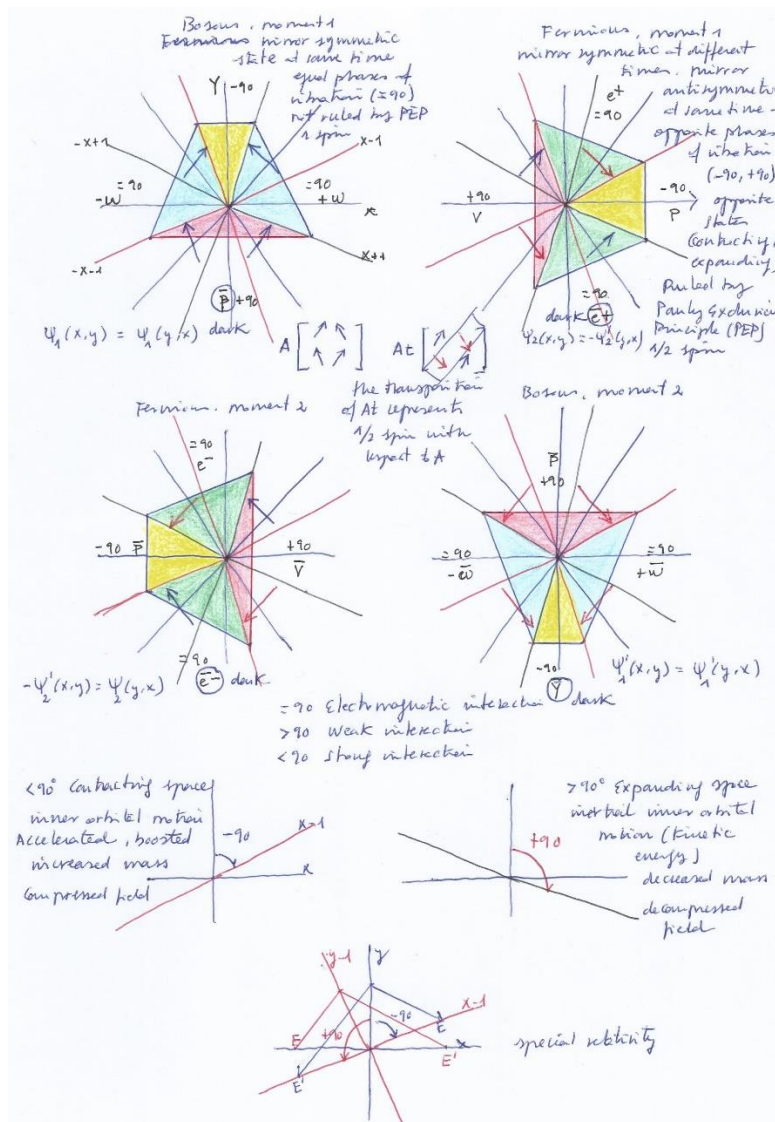 Bosons. moment 1
Fermions mirror symmetric
state at same time
equal phases of
vibration (=90)
not ruled by PEP
1 spin
Y -90
-x+1
x-1
=90
-W
=90
+W
x
-x-1
x+1
p̅ +90
dark
Ψ₁(x,y) = Ψ₁(y,x)
Fermions, moment 1
mirror symmetric at different
times. mirror
antisymmetric
at same time -
opposite phases
of vibration
(-90, +90)
opposite
states
contracting,
expanding,
Ruled by
Pauly Exclusion
Principle (PEP)
1/2 spin
e+
=90
+90
V
-90
P
=90
dark e̅+
Ψ₂(x,y) = -Ψ₂'(y,x)
A
At
the transposition
of At represents
1/2 spin with
respect to A
Fermions. moment 2
=90
e-
=90 P̅
+90
V̅
=90
e̅- dark
-Ψ₂'(x,y) = Ψ₂(y,x)
Bosons, moment 2
P̅
+90
=90
-W̅
=90
+W̅
-90
Y̅ dark
Ψ₁'(x,y) = Ψ₁'(y,x)
=90 Electromagnetic interaction
>90 Weak interaction
<90 Strong interaction
<90° Contracting space
inner orbital motion
Accelerated, boosted
increased mass
Compressed field
-90
x-1
x
>90° Expanding space
inertial inner orbital
motion (Kinetic
energy)
decreased mass
decompressed
field
+90
y-1
y
x-1
+90
-90
E
E
x
E'
E'
special relativity